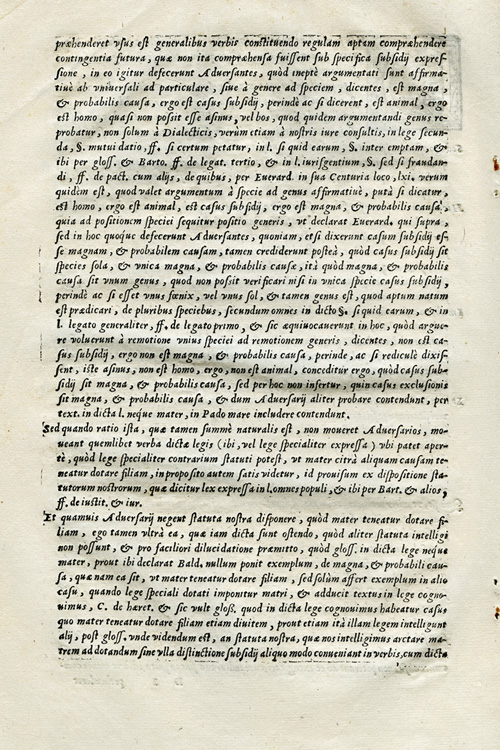 præhenderet vsus est generalibus verbis constituendo regulam aptam compræhendere
contingentia futura, quæ non ita compræhensa fuissent sub specifica subsidij expres-
sione, in eo igitur defecerunt Aduersantes, quòd ineptè argumentati sunt affirma-
tiuè ab vniuersali ad particulare, siue à genere ad speciem, dicentes, est magna,
& probabilis causa, ergo est casus subsidij, perindè ac si dicerent, est animal, ergo
est homo, quasi non possit esse asinus, vel bos, quod quidem argumentandi genus re-
probatur, non solum à Dialecticis, verùm etiam à nostris iure consultis, in lege secun-
da, §. mutui datio, ff. si certum petatur, in l. si quid earum, §. inter emptam, &
ibi per gloss. & Barto. ff. de legat. tertio, & in l. iurisgentium, §. sed si fraudan-
di, ff. de pact. cum alijs, de quibus, per Euerard. in sua Centuria loco, lxi. verum
quidem est, quod valet argumentum à specie ad genus affirmatiuè, putà si dicatur,
est homo, ergo est animal, est casus subsidij, ergo est magna, & probabilis causa,
quia ad positionem speciei sequitur positio generis, vt declarat Euerard. qui supra,
sed in hoc quoque defecerunt Aduersantes, quoniam, etsi dixerunt casum subsidij es-
se magnam, & probabilem causam, tamen crediderunt posteà, quòd casus subsidij sit
species sola, & vnica magnæ, & probabilis causæ, ità quòd magna, & probabilis
causa sit vnum genus, quod non possit verificari nisi in vnica specie casus subsidij,
perindè ac si esset vnus fœnix, vel vnus sol, & tamen genus est, quod aptum natum
est prædicari, de pluribus speciebus, secundum omnes in dicto §. si quid earum, & in
l. legato generaliter, ff. de legato primo, & sic æquiuocauerunt in hoc, quòd argue-
re voluerunt à remotione vnius speciei ad remotionem generis, dicentes, non est ca-
sus subsidij, ergo non est magna, & probabilis causa, perinde, ac si rediculè dixis-
sent, iste asinus, non est homo, ergo, non est animal, conceditur ergo, quòd casus sub-
sidij sit magna, & probabilis causa, sed per hoc non infertur, quin casus exclusionis
sit magna, & probabilis causa, & dum Aduersarij aliter probare contendunt, per
text. in dicta l. neque mater, in Pado mare includere contendunt.
Sed quando ratio ista, quæ tamen summè naturalis est, non moueret Aduersarios, mo-
ueant quemlibet verba dictæ legis (ibi, vel lege specialiter expressa) vbi patet aper-
tè, quòd lege specialiter contrarium statui potest, vt mater citrà aliquam causam te-
neatur dotare filiam, in proposito autem satis videtur, id prouisum ex dispositione sta-
tutorum nostrorum, quæ dicitur lex expressa in l. omnes populi, & ibi per Bart. & alios,
ff. de iustit. & iur.
Et quamuis Aduersarij negent statuta nostra disponere, quòd mater teneatur dotare fi-
liam, ego tamen vltrà ea, quæ iam dicta sunt ostendo, quòd aliter statuta intelligi
non possunt, & pro faciliori dilucidatione præmitto, quòd gloss. in dicta lege neque
mater, prout ibi declarat Bald. nullum ponit exemplum, de magna, & probabili cau-
sa, quæ nam ea sit, vt mater teneatur dotare filiam, sed solùm affert exemplum in alio
casu, quando lege speciali dotati imponitur matri, & adducit textus in lege cogno-
uimus, C. de hæret. & sic vult gloß. quod in dicta lege cognouimus habeatur casus
quo mater teneatur dotare filiam etiam diuitem, prout etiam ità illam legem intelligunt
alij, post gloss. vnde videndum est, an statuta nostra, quæ nos intelligimus arctare ma-
trem ad dotandum sine vlla distinctione subsidij aliquo modo conueniant in verbis, cum dicta